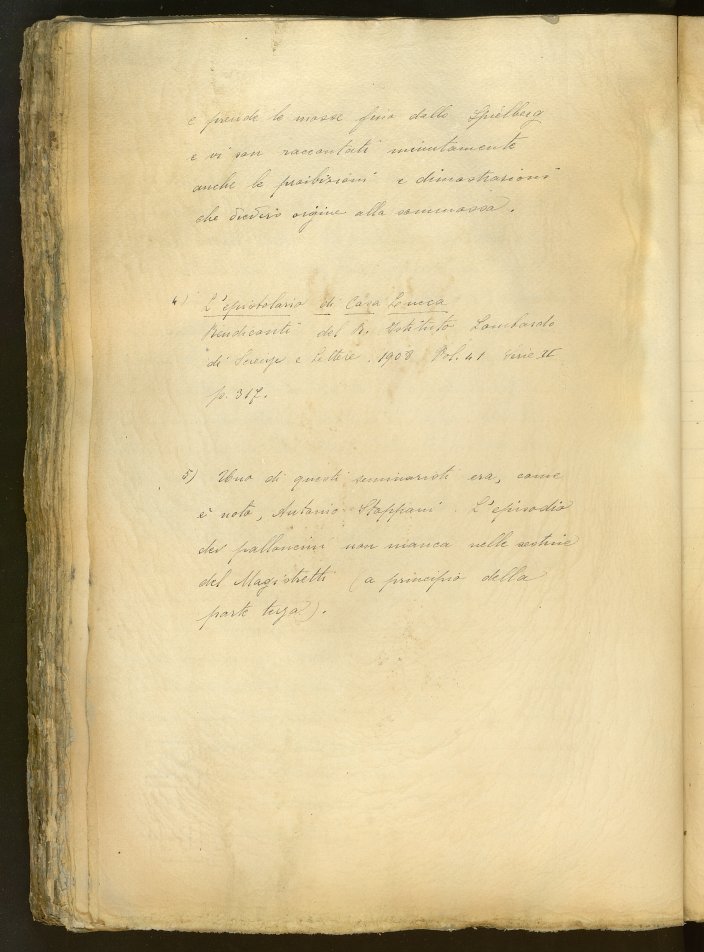 e prende le mosse fino dallo Spielberg
e vi son raccontati minutamente
anche le proibizioni e dimostrazioni
che diedero origine alla sommossa.
4) L'epistolario di Casa Lucca
Rendiconti del R. Istituto Lombardo
di Scienze e Lettere. 1908 Vol. 41 Serie II
p. 317.
5) Uno di questi seminaristi era, come
è noto, Antonio Stoppani. L'episodio
dei palloncini non manca nelle sestine
del Magistretti (a principio della
parte terza).